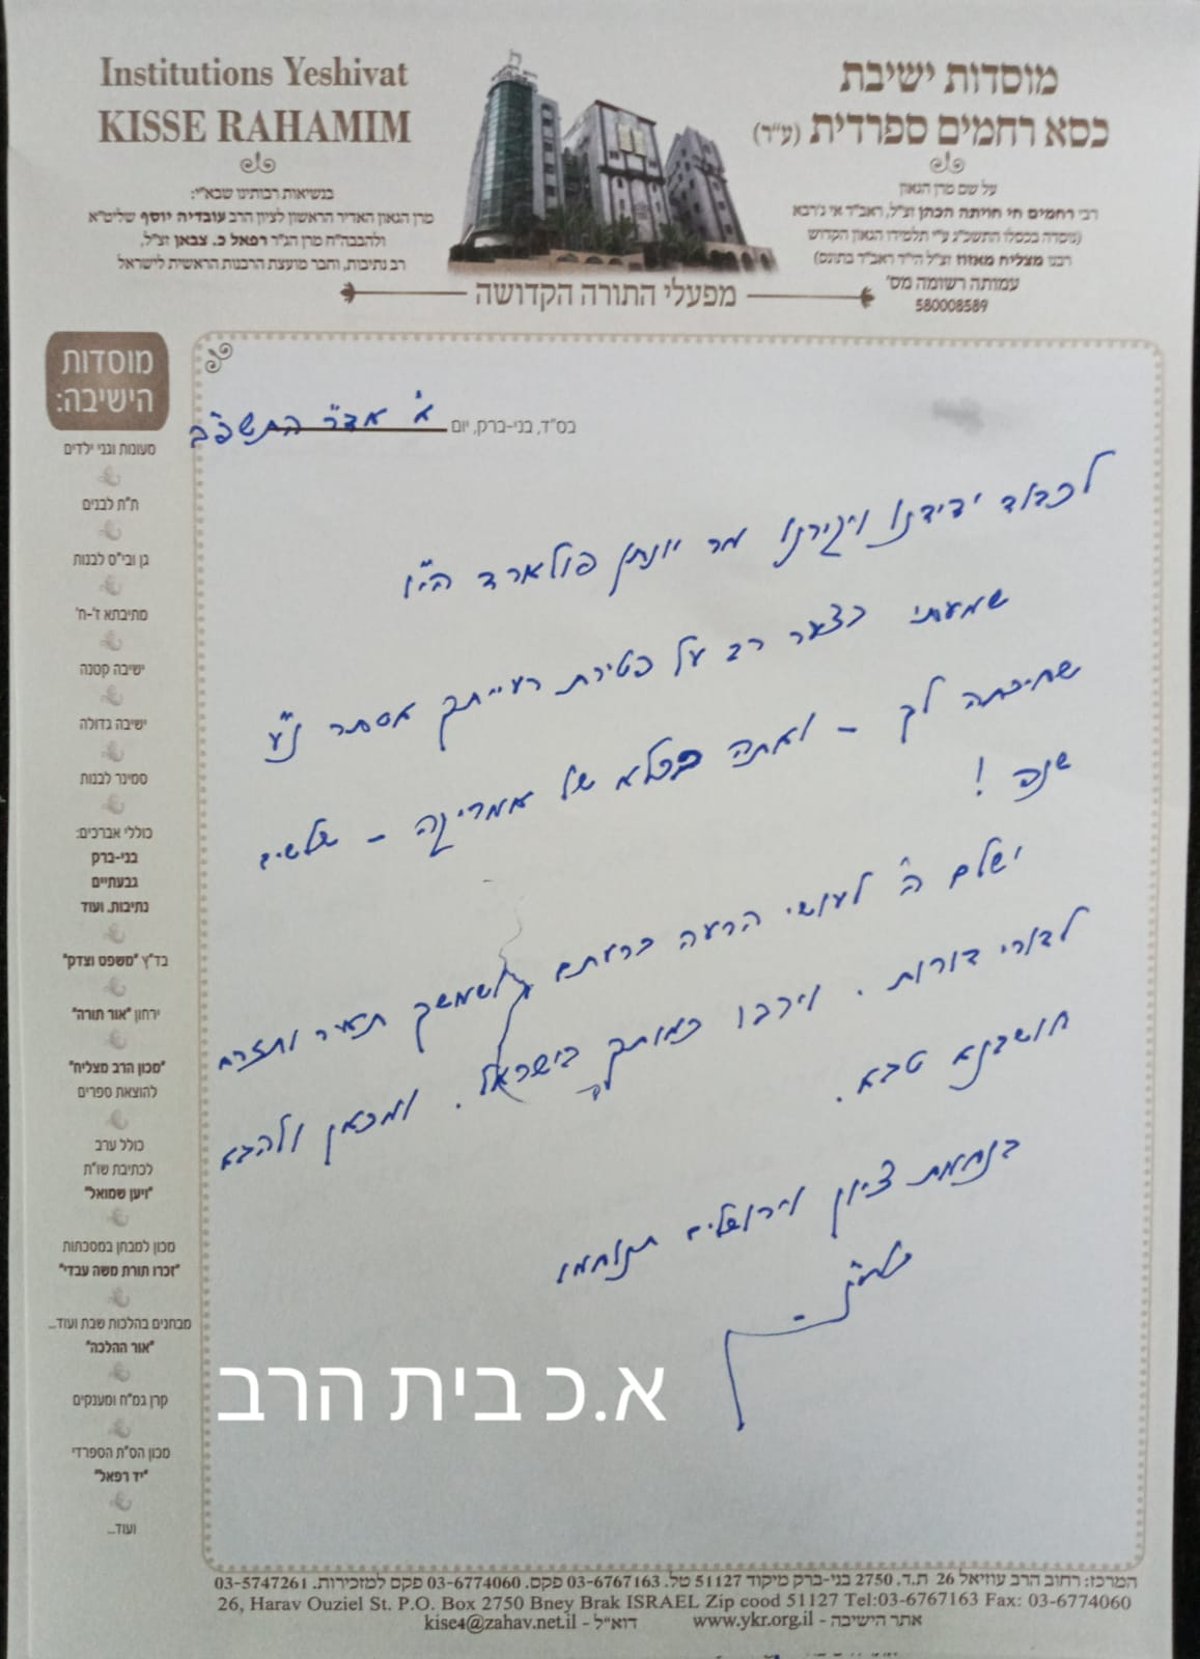 Institutions Yeshivat
KISSE RAHAMIM
בנשיאות רבותינו שבא"י:
מרן הגאון האדיר הראשון לציון הרב עובדיה יוסף שליט"א
ולהבבה"ח מרן הג"ר רפאל כ. צבאן זצ"ל,
רב נתיבות, וחבר מועצת הרבנות הראשית לישראל
מוסדות ישיבת
כסא רחמים ספרדית (ע"ר)
על שם מרן הגאון
רבי רחמים חי חויתה הכהן זצ"ל, ראב"ד אי ג'רבא
(נוסדה בכסלו התשכ"ג ע"י תלמידו הגאון הקדוש
רבנו מצליח מאזוז זצ"ל הי"ד ראב"ד בתונס)
עמותה רשומה מס'
580008589
מפעלי התורה הקדושה
מוסדות
הישיבה:
מעונות וגני ילדים
ת"ת לבנים
גן ובי"ס לבנות
מתיבתא ז'-ח'
ישיבה קטנה
ישיבה גדולה
סמינר לבנות
כוללי אברכים:
בני-ברק
גבעתיים
נתיבות, ועוד
בד"ץ "משפט וצדק"
ירחון "אור תורה"
"מכון הרב מצליח"
להוצאת ספרים
כולל ערב
לכתיבת שו"ת
"ויען שמואל"
מכון למבחן במסכתות
"זכרו תורת משה עבדי"
מבחנים בהלכות שבת ועוד...
"אור ההלכה"
קרן גמ"ח ומענקים
מכון הס"ת הספרדי
"יד רפאל"
ועוד...
בס"ד, בני-ברק, יום א' אד"ר התשפ"ב
לכבוד ידידנו ויקירנו מר יונתן פולארד הי"ו
שמעתי בצער רב על פטירת רעייתך אסתר נ"ע
שחיכתה לך - ואתה בכלא של אמריקה - שלשים
שנה !
ישלם ה' לעושי הרעה כרעתם ושמשך תאיר ותזרח
לדורי דורות . וירבו כמותך בישראל . ומכאן ולהבא
חושבנא טבא .
בנחמת ציון וירושלים תנוחמו
א.כ בית הרב
המרכז: רחוב הרב עוזיאל 26 ת.ד. 2750 בני-ברק מיקוד 51127 טל. 03-6767163 פקס. 03-6774060 פקס למזכירות. 03-5747261
26, Harav Ouziel St. P.O. Box 2750 Bney Brak ISRAEL Zip cood 51127 Tel:03-6767163 Fax: 03-6774060
אתר הישיבה - www.ykr.org.il דוא"ל - kise4@zahav.net.il